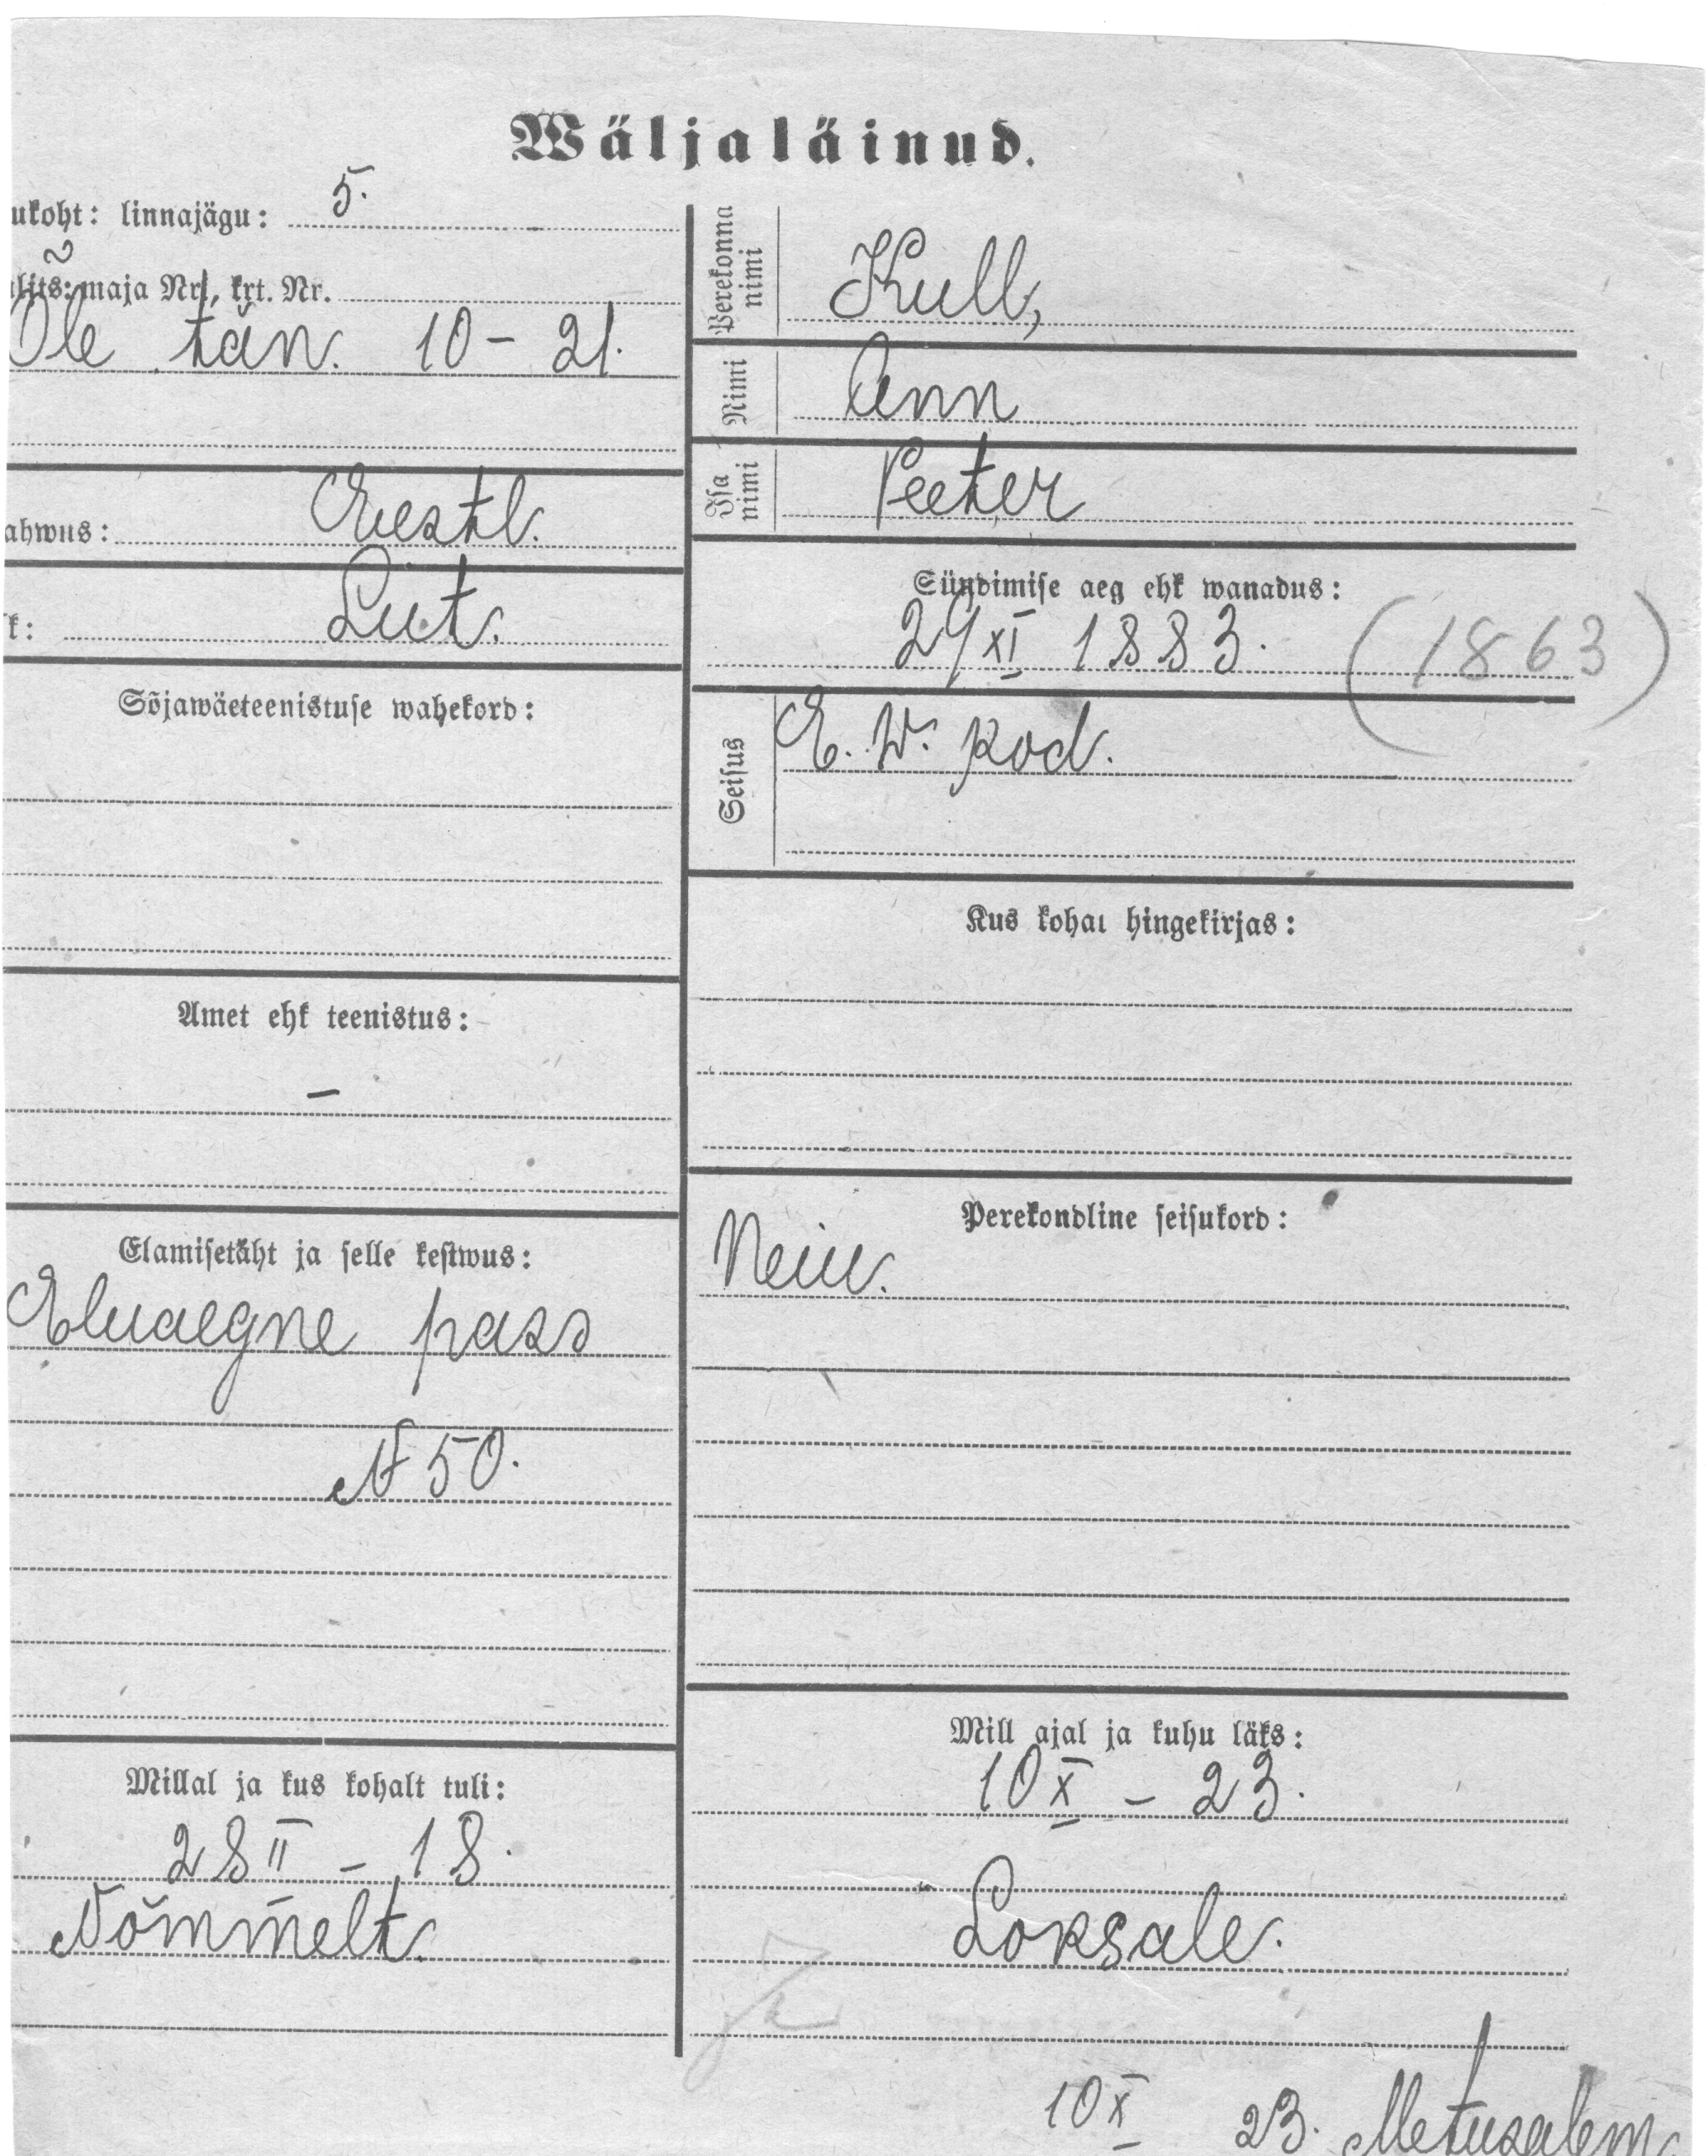 Wäljaläinud.
ukoht: linnajägu: 5.
ulits: maja Nr., krt. Nr.
Õle tän. 10 – 21.
ahwus: Eestl.
k: Lut.
Sõjawäeteenistuse wahekord:
Amet ehk teenistus:
–
Elamisetäht ja selle kestwus:
Eluaegne pass
№ 50.
Millal ja kus kohalt tuli:
28 II – 18.
Nõmmelt.
Perekonna nimi Kull,
Nimi Ann
Isa nimi Peeter
Sündimise aeg ehk wanadus:
29 XI 1883. (1863)
Seisus E. W. kod.
Kus kohal hingekirjas:
Perekondline seisukord:
Neiu.
Mill ajal ja kuhu läks:
10 X – 23.
Loksale.
10 X 23. Metusalem